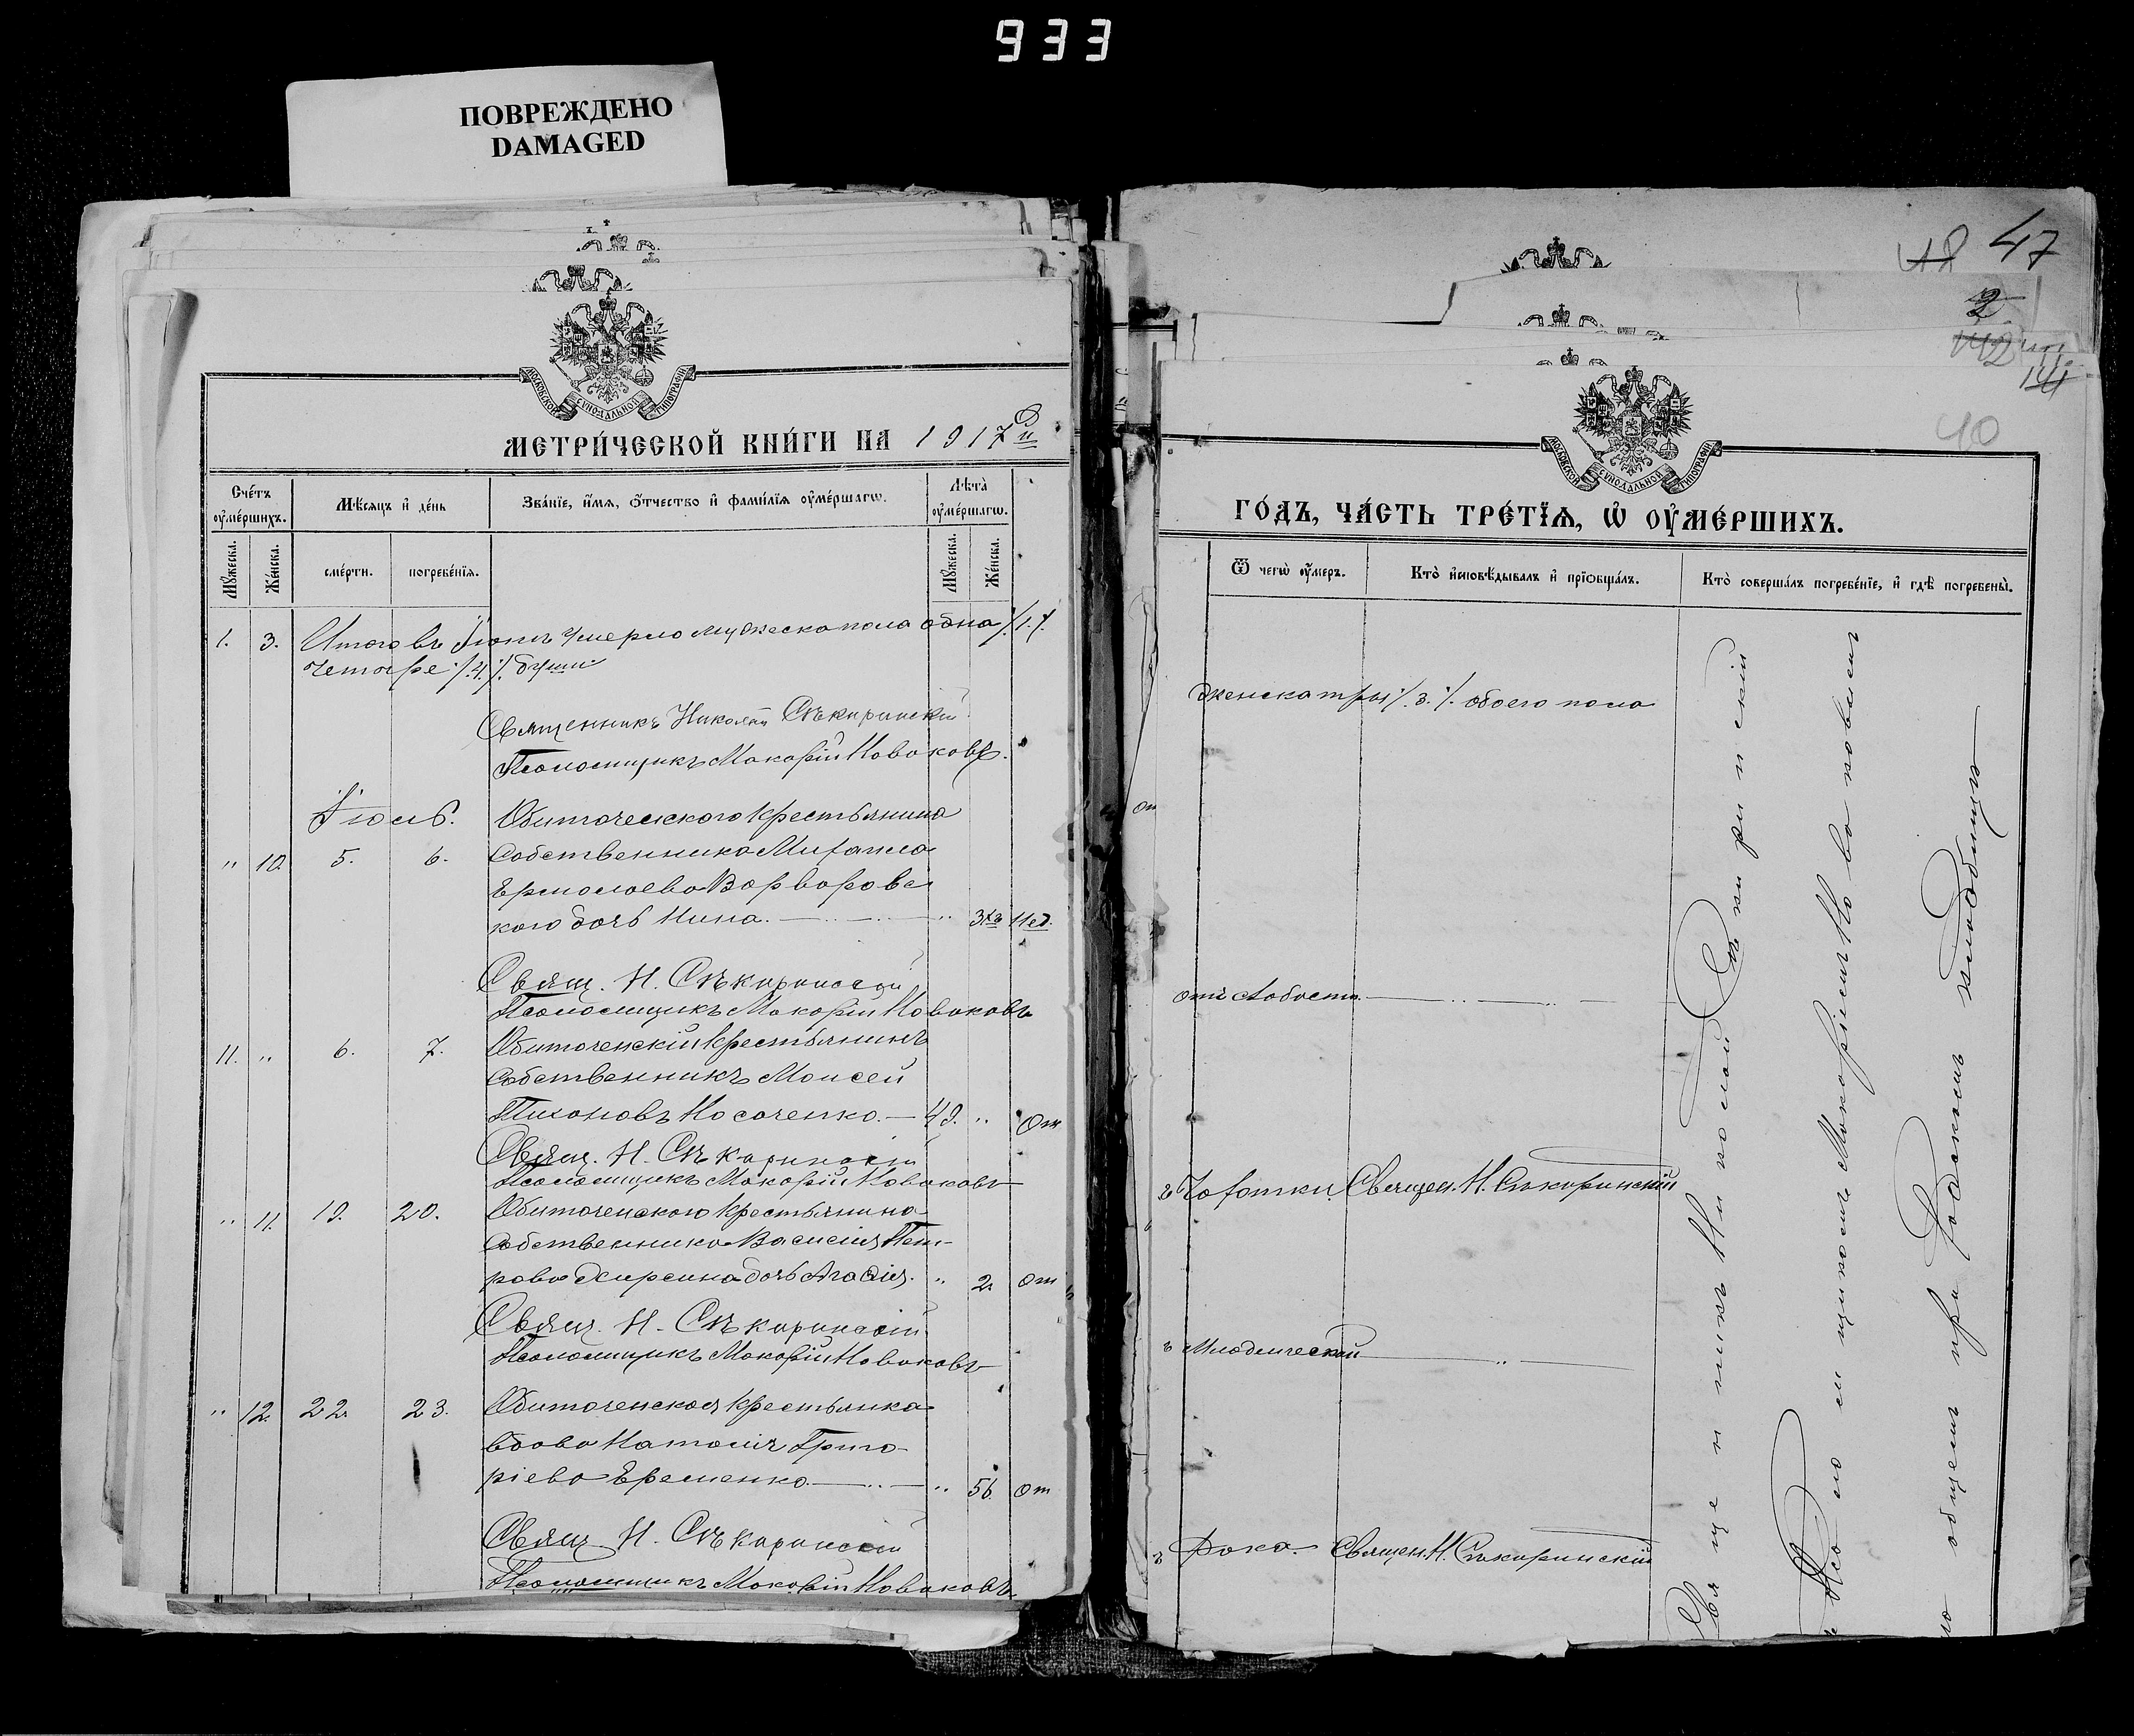 933
ПОВРЕЖДЕНО
DAMAGED
МОСКОВСКОЙ СѴНОДАЛЬНОЙ ТИПОГРАФІИ
МЕТРИ́ЧЕСКОЙ КНИ́ГИ НА 1917й
Сче́тъ оу҆ме́ршихъ.
Мѣ́сяцъ и҆ де́нь
Зва́нїе, и҆́мя, ѻ҆́тчество и҆ фами́лїя оу҆ме́ршагѡ.
Лѣ́та оу҆ме́ршагѡ.
Мꙋ́жеска.
Же́нска.
сме́рти.
погребе́нїя.
Мꙋ́жеска.
Же́нска.
1. 3. Итого въ Іюнѣ умерло мужеска пола одна /.1./.
четыре /.4./. души
Священникъ Николай Сѣкиринскій
Псаломщикъ Макарій Новаковъ.
Іюль. Обиточенскаго крестьянина
" 10. 5. 6. собственника Михаила
Ермолаева Варваровс
кого дочь Нина. " 3хъ нед.
Свящ. Н. Сѣкиринскій
Псаломщикъ Макарій Новаковъ
11. " 6. 7. Обиточенскій крестьянинъ
собственникъ Моисей
Тихоновъ Носаченко. — 49. " От
Свящ. Н. Сѣкиринскій
Псаломщикъ Макарій Новаковъ
" 11. 19. 20. Обиточенскаго крестьянина
собственника Василія Пет-
рова дочь " 2. От
Свящ. Н. Сѣкиринскій
Псаломщикъ Макарій Новаковъ
" 12. 22. 23. Обиточенская крестьянка
вдова Наталія Григо-
ріева Еременко. " 56. От
Свящ. Н. Сѣкиринскій
Псаломщикъ Макарій Новаковъ
47
2
40
МОСКОВСКОЙ СѴНОДАЛЬНОЙ ТИПОГРАФІИ
ГО́ДЪ, ЧА́СТЬ ТРЕ́ТЇЯ, Ѡ҆ ОУ҆МЕ́РШИХЪ.
Ѿ чегѡ̀ оу҆́меръ.
Кто̀ и҆сповѣ́дывалъ и҆ прїѡбща́лъ.
Кто̀ соверша́лъ погребе́нїе, и҆ гдѣ̀ погребены̀.
женска три /.3./. обоего пола
отъ слабости
ъ Чахотки. Священ. Н. Сѣкиринскій
ъ Младенческой
ъ рака. Священ. Н. Сѣкиринскій
Священникъ Николай Сѣкиринскій
Псаломщикомъ Макаріемъ Новаковымъ
общемъ приходскомъ кладбищѣ